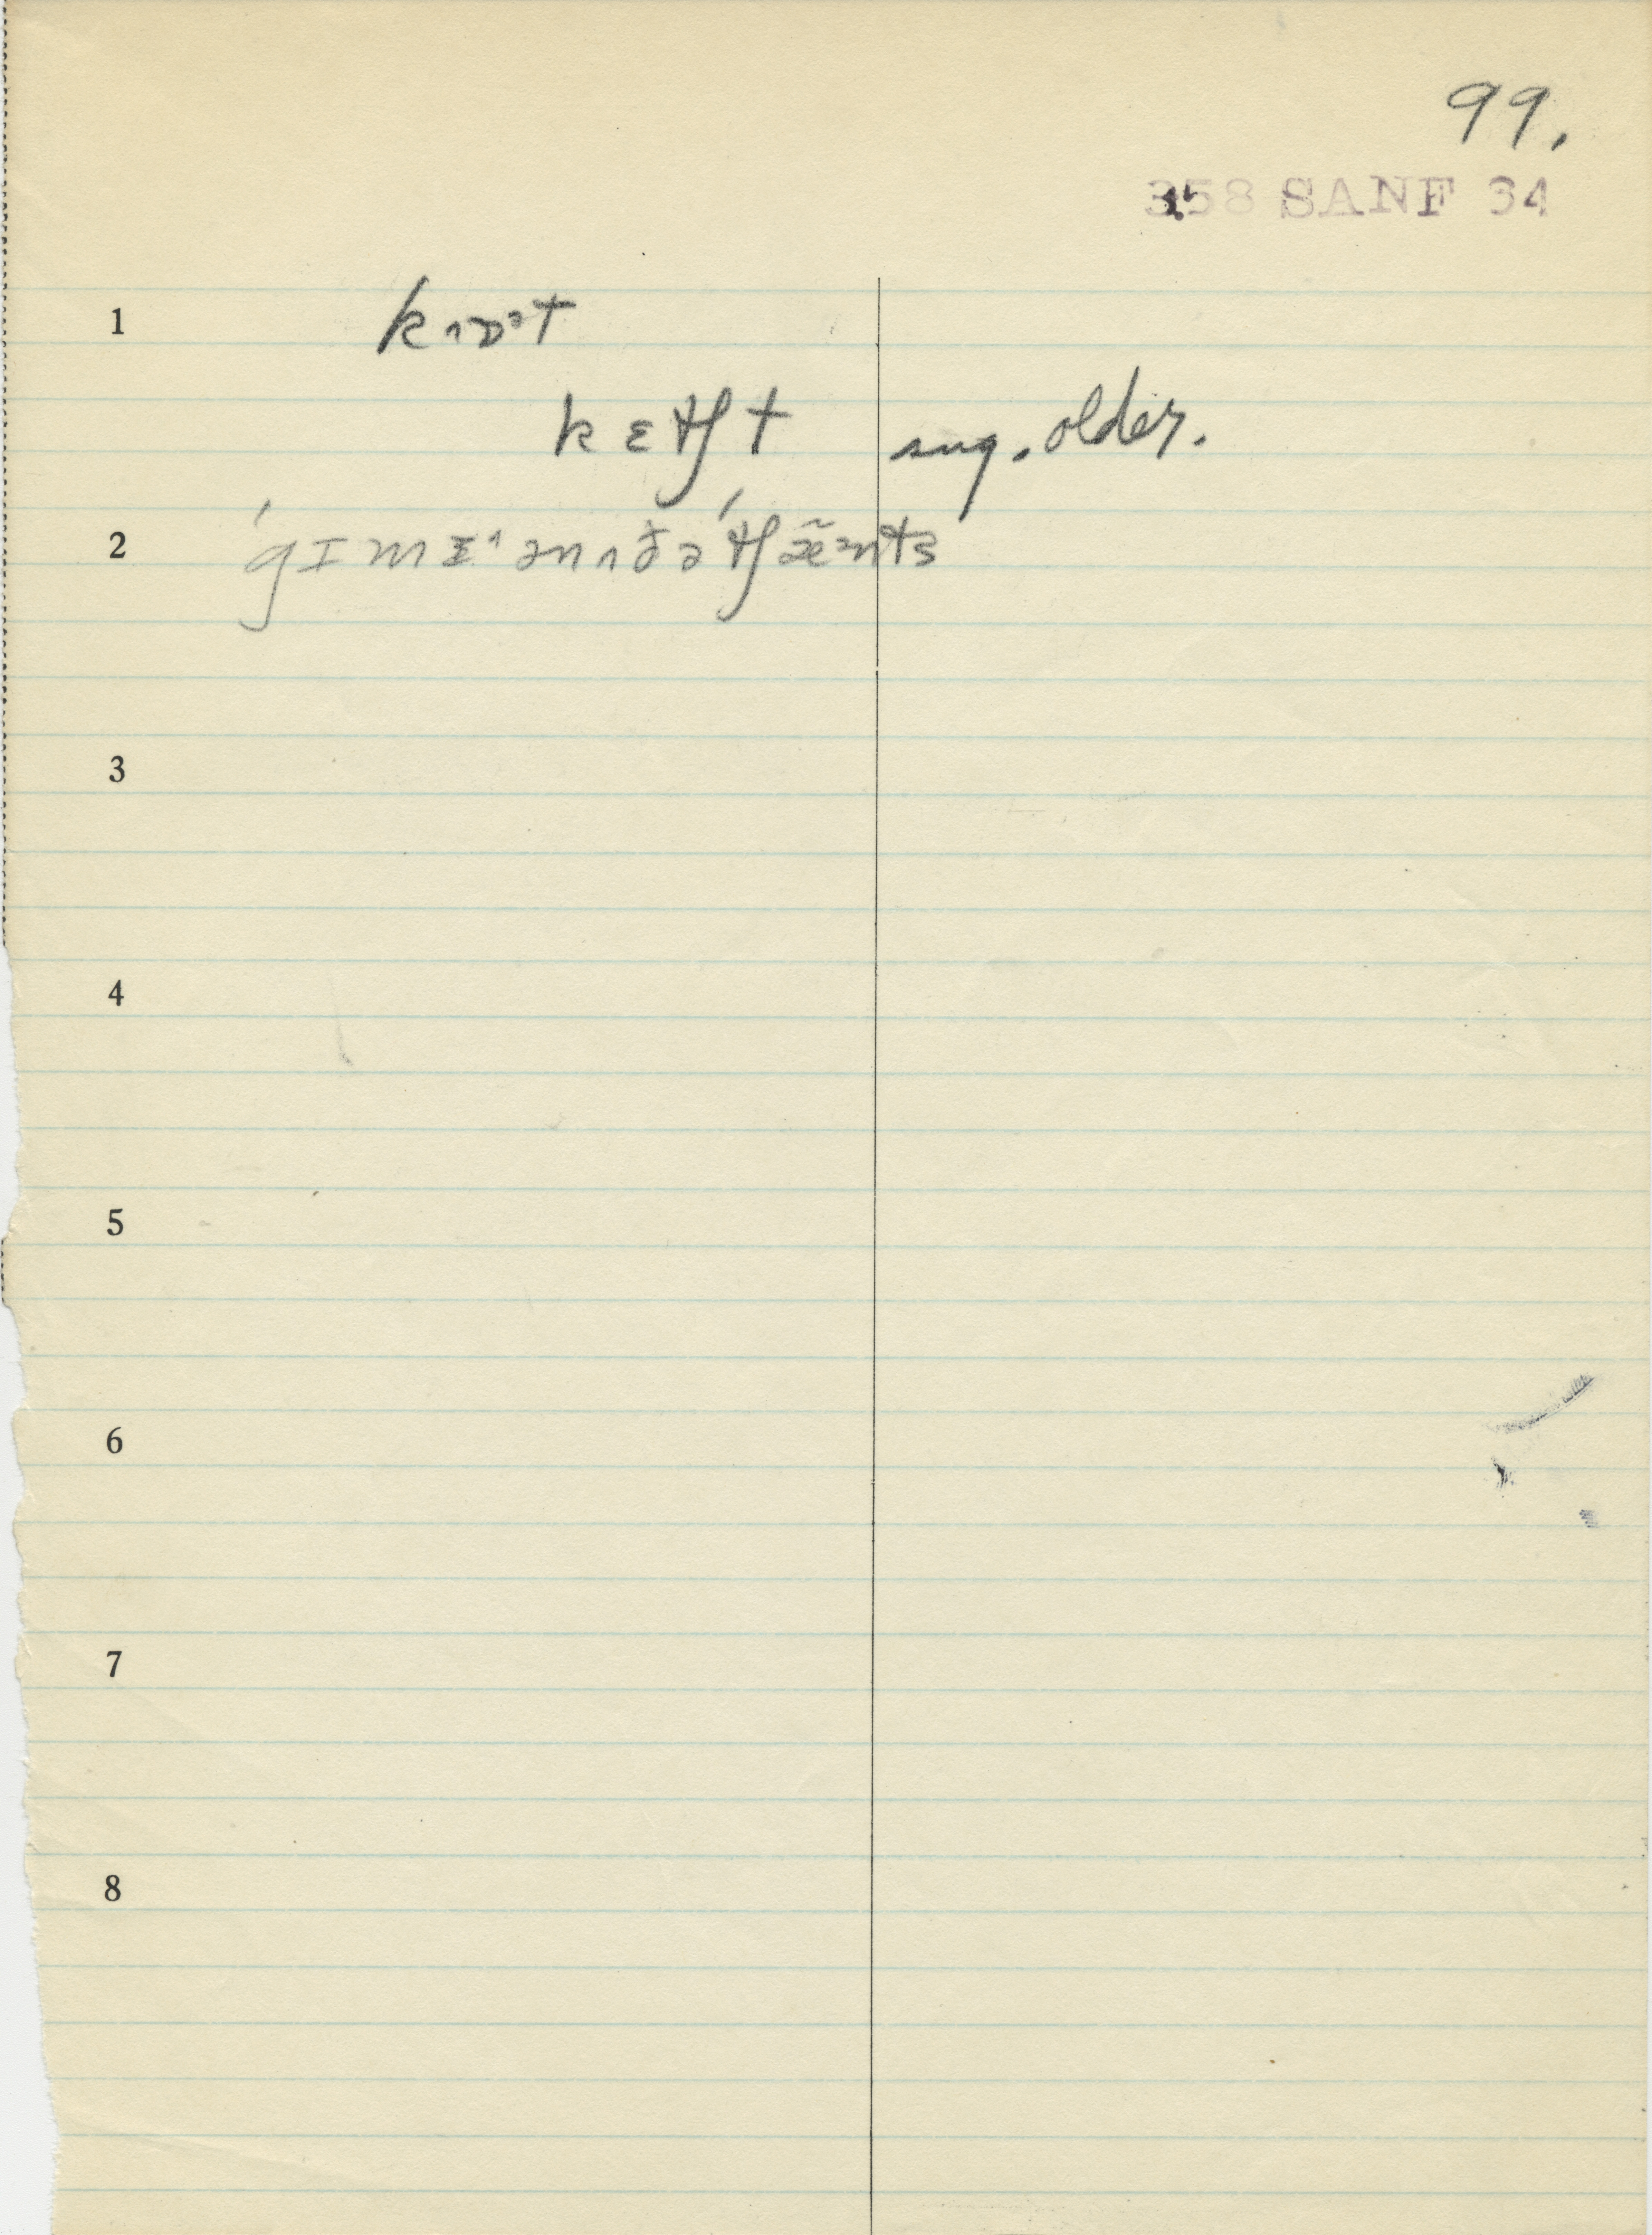 99.
358 SANF 34
1 kɒˀt
kɛʧt sug. older.
2 ˈgɪmɪ^ ənʌðəˈʧæ̃nts
3
4
5
6
7
8